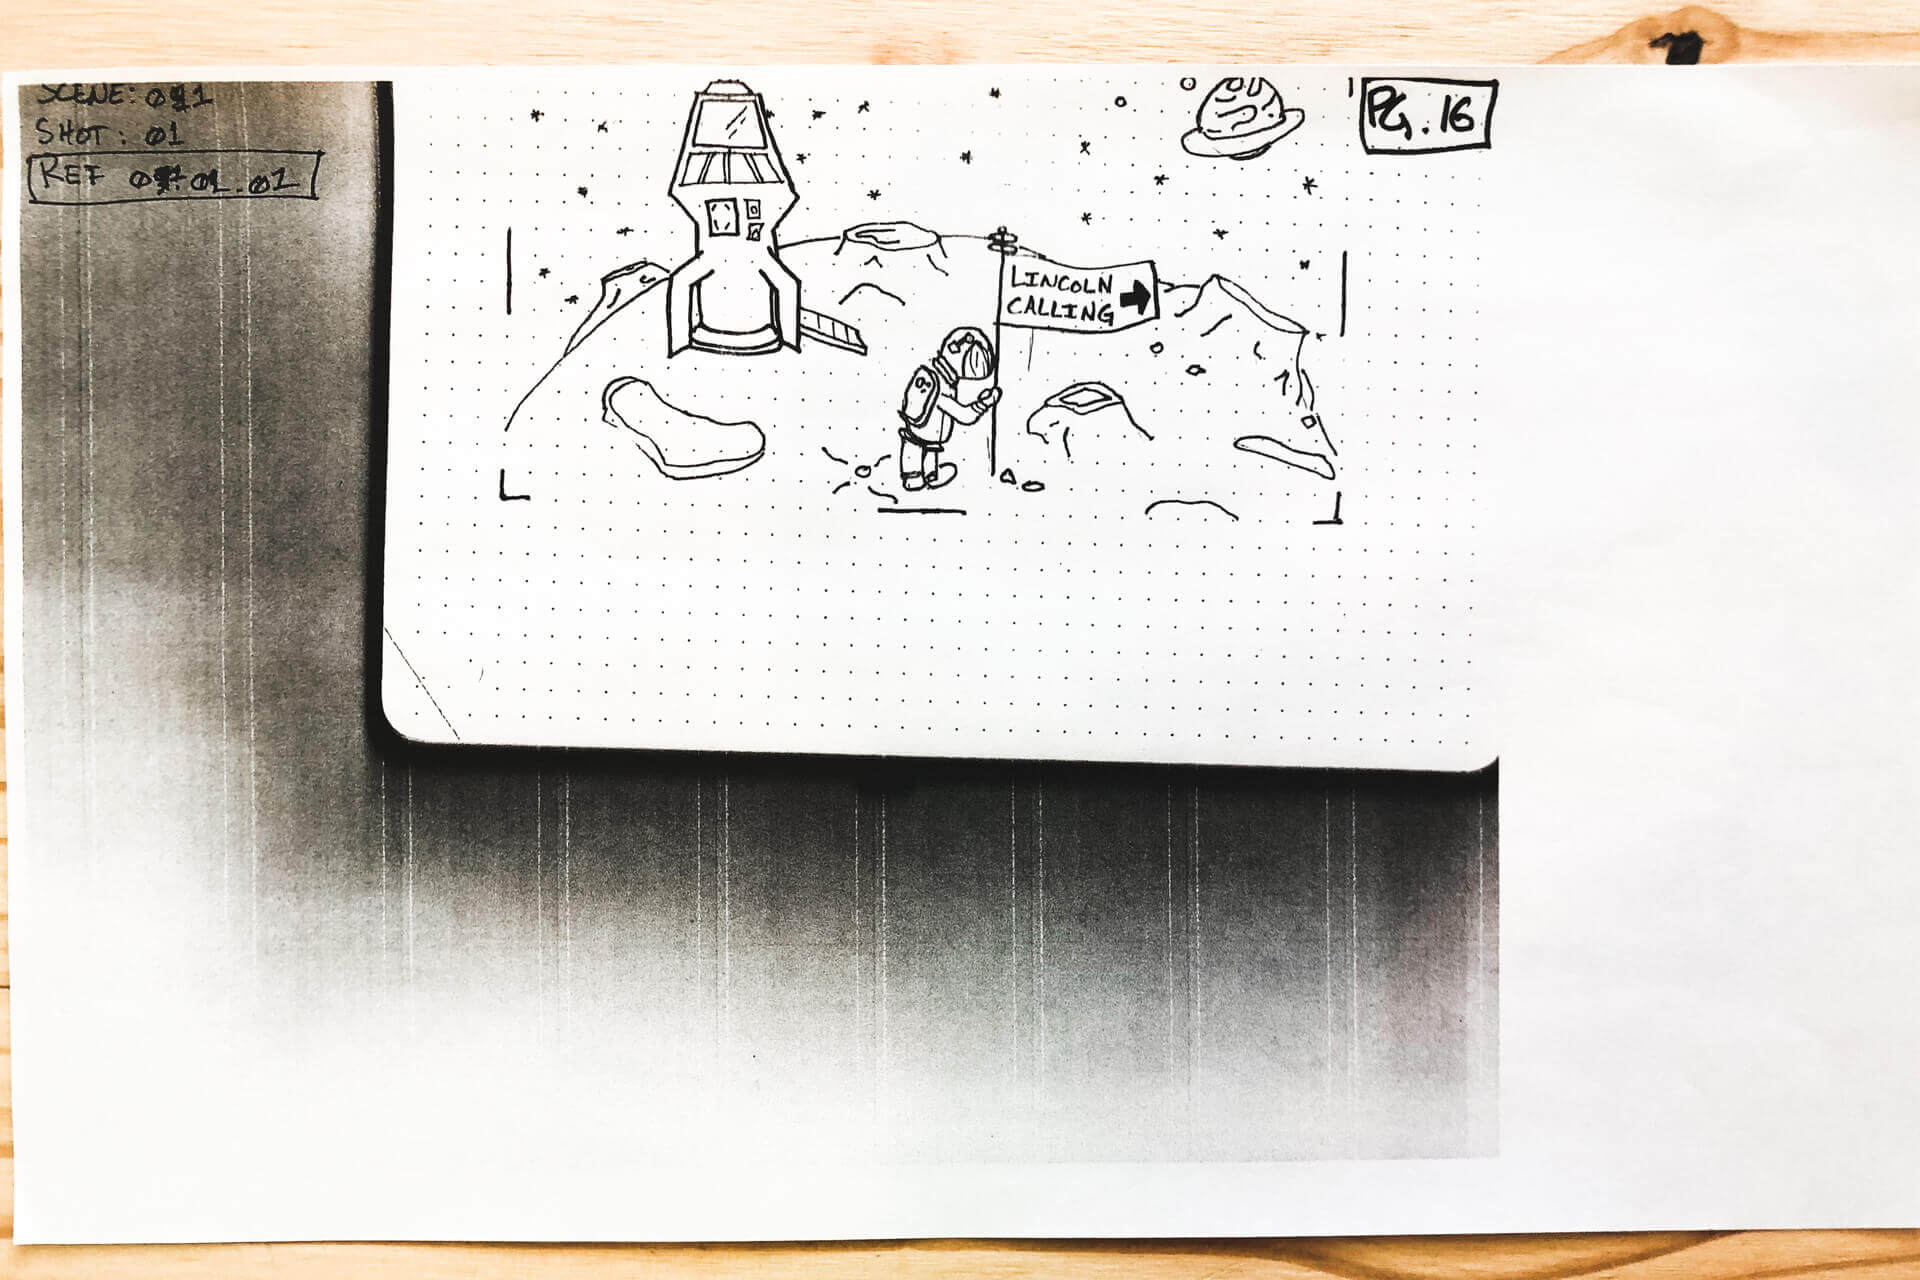 SCENE:
SHOT: 01
REF
PG. 16
LINCOLN
CALLING